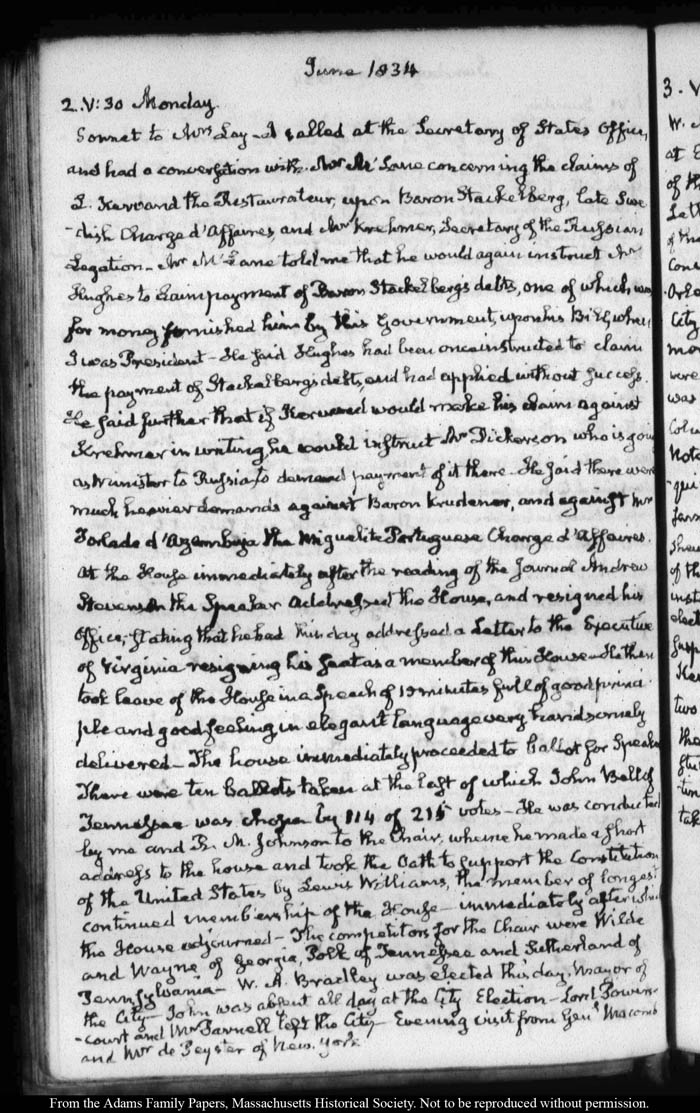 June 1834
2. V:30 Monday.
Sonnet to Mrs Lay - I called at the Secretary of States Office,
and had a conversation with Mr McLane concerning the claims of
L. Kervand the Restaurateur, upon Baron Stackelberg, late Swe
-dish Charge d'Affaires, and Mr Krehmer, Secretary of the Russian
Legation - Mr McLane told me that he would again instruct Mr
Hughes to claim payment of Baron Stackelberg's debts, one of which was
for money furnished him by this Government, upon his Bill, when
I was President - He said Hughes had been once instructed to claim
the payment of Stackelberg's debts, and had applied without success.
He said further that if Kervand would make his claim against
Krehmer in writing he would instruct Mr Dickerson who is going
as Minister to Russia to demand payment of it there - He said there were
much heavier demands against Baron Krudener, and against Mr
Torlade d'Azambuja the Miguelite Portuguese Charge d'Affaires.
At the House immediately after the reading of the Journal Andrew
Stevenson the Speaker addressed the House, and resigned his
Office; stating that he had this day addressed a Letter to the Executive
of Virginia resigning his seat as a member of this House - He then
took leave of the House in a Speech of 19 minutes full of good princi
ple and good feeling in elegant language very handsomely
delivered - The house immediately proceeded to ballot for Speaker
There were ten ballots taken at the last of which John Bell of
Tennessee was chosen by 114 of 215 votes - He was conducted
by me and R. M. Johnson to the Chair, where he made a short
address to the house and took the Oath to support the Constitution
of the United States by Lewis Williams, the member of longest
continued membership of the House - immediately after which
the House adjourned - The competitors for the Chair were Wilde
and Wayne of Georgia, Polk of Tennessee and Sutherland of
Pennsylvania - W. A. Bradley was elected this day, Mayor of
the City - John was absent all day at the City Election - Lord Powers-
-court and Mr Parnell left the City - Evening visit from Genl Macomb
and Mr de Peyster of New-York.
From the Adams Family Papers, Massachusetts Historical Society. Not to be reproduced without permission.